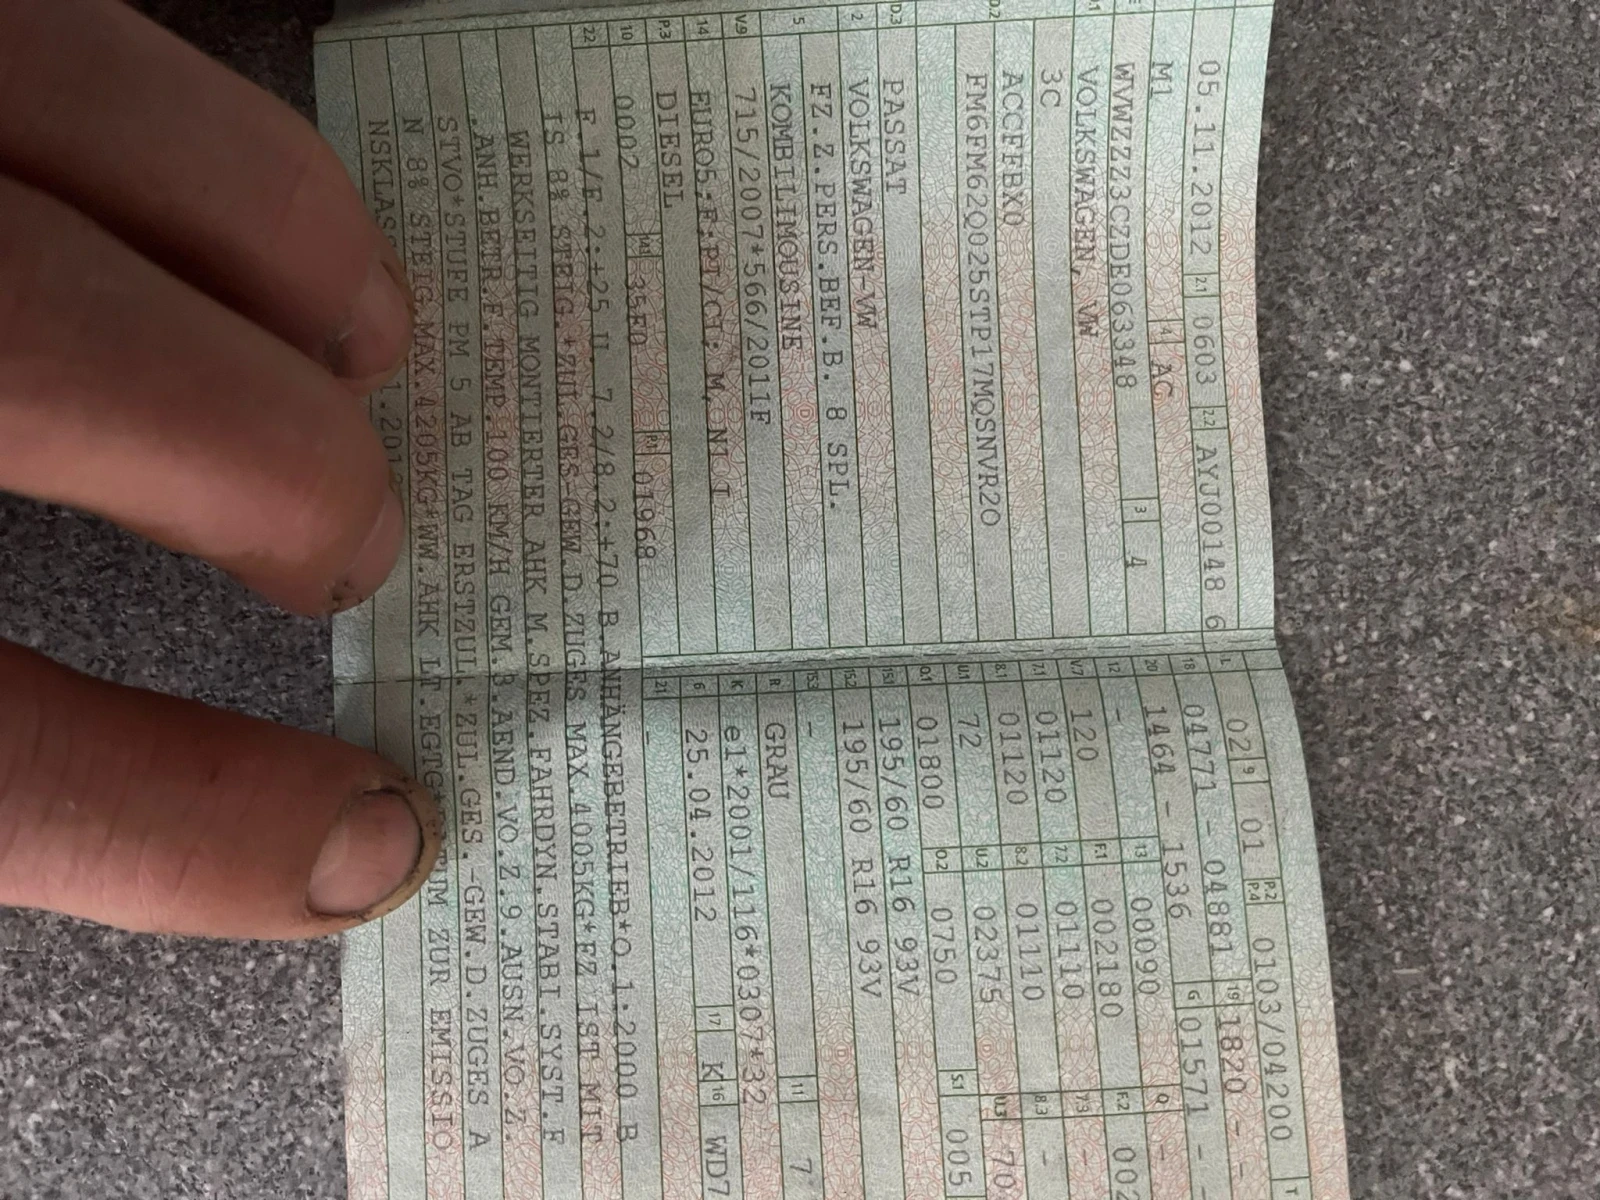 05.11.2012 2.1 0603 2.2 AYJ00148 6
M1 4 AC
WVWZZZ3CZDE063348 3 4
VOLKSWAGEN, VW
3C
ACCFFBX0
FM6FM62Q025STP17MQSNVR2O
D.3 PASSAT
2 VOLKSWAGEN-VW
FZ.Z.PERS.BEF.B. 8 SPL.
5 KOMBILIMOUSINE
V.9 715/2007*566/2011F
14 EURO5;F;PI/CI; M, N1 I
P.3 DIESEL
10 0002 14.1 35F0 P.1 01968
L 02 9 01 P.2 P.4 0103/04200 T
18 04771 - 04881 19 1820 -
20 1464 - 1536 G 01571 -
12 - 13 00090 Q -
V.7 120 F.1 002180 F.2 002
7.1 01120 7.2 01110 7.3 -
8.1 01120 8.2 01110 8.3 -
U.1 72 U.2 02375 U.3 70
O.1 01800 O.2 0750 S.1 005
15.1 195/60 R16 93V
15.2 195/60 R16 93V
15.3 -
R GRAU 11 7
K e1*2001/116*0307*32
6 25.04.2012 17 K 16 WD7
21 -
22 F.1/F.2:+25 U. 7.2/8.2:+70 B.ANHÄNGEBETRIEB*O.1:2000 B
IS 8% STEIG.*ZUL.GES-GEW.D.ZUGES MAX.4005KG*FZ IST MIT
WERKSEITIG MONTIERTER AHK M.SPEZ.FAHRDYN.STABI.SYST.F
.ANH.BETR.F.TEMP.100 KM/H GEM.3.AEND.VO.Z.9.AUSN.VO.Z.
STVO*STUFE PM 5 AB TAG ERSTZUL.*ZUL.GES.-GEW.D.ZUGES A
N 8% STEIG.MAX.4205KG*WW.AHK LT.EGTG* ZUR EMISSIO